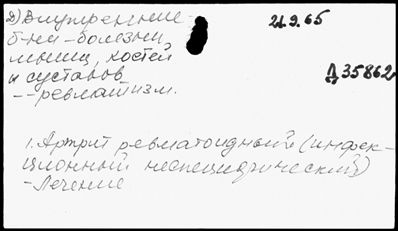 2) Внутренние
б-ни - болезни
мышц, костей
и суставов
-- ревматизм.
21.9.65
Д 35862
1. Артрит ревматоидный (инфек-
ционный неспецифический)
- Лечение